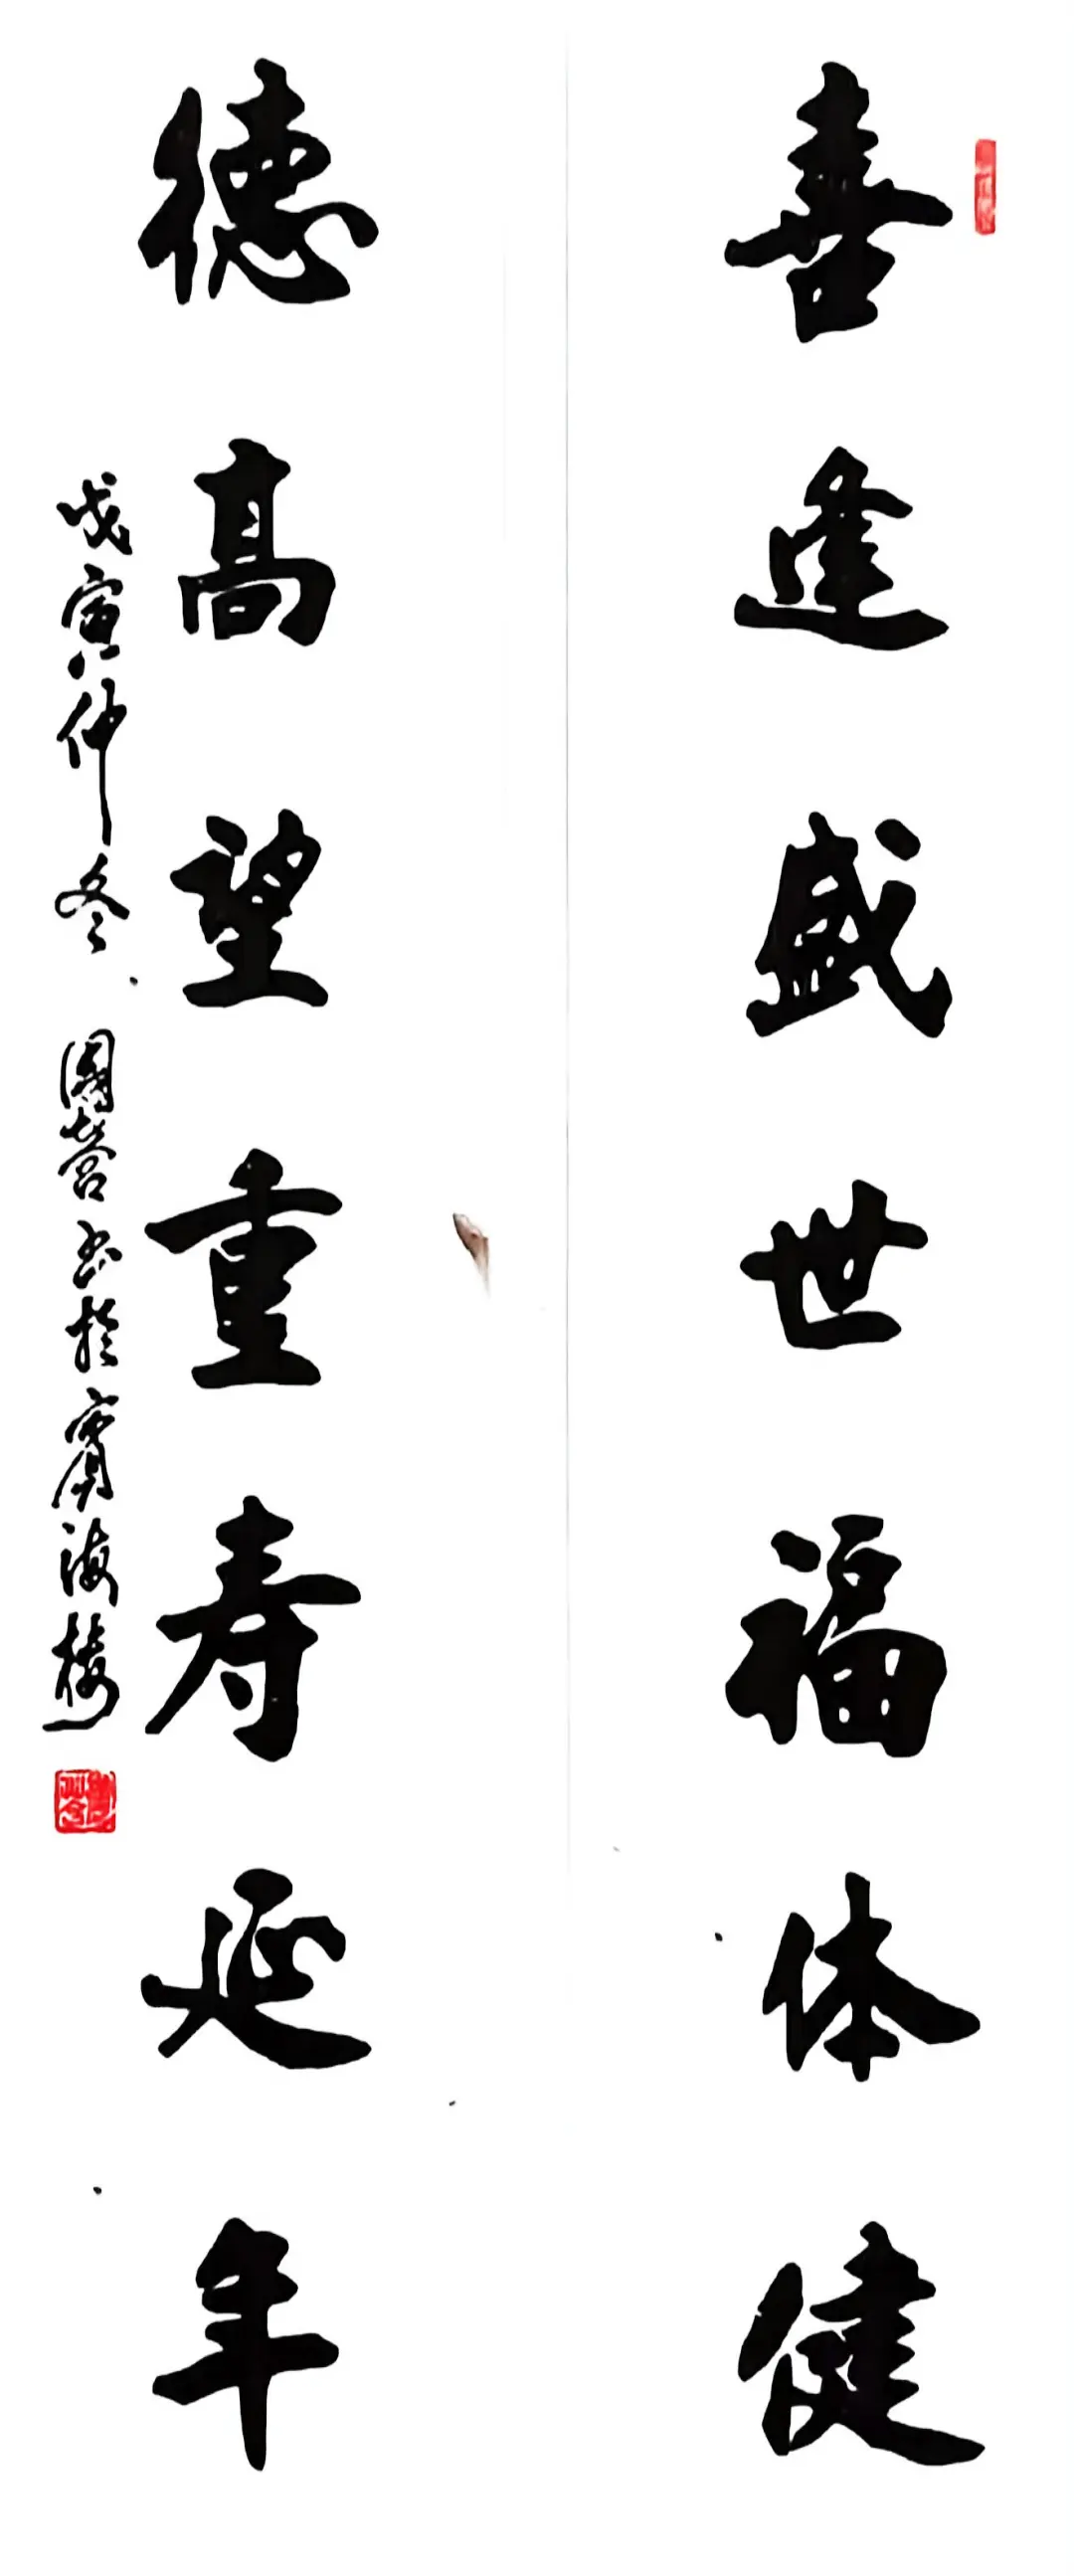 喜逢盛世福体健
德高望重寿延年
戊寅仲冬 国营书於 海楼